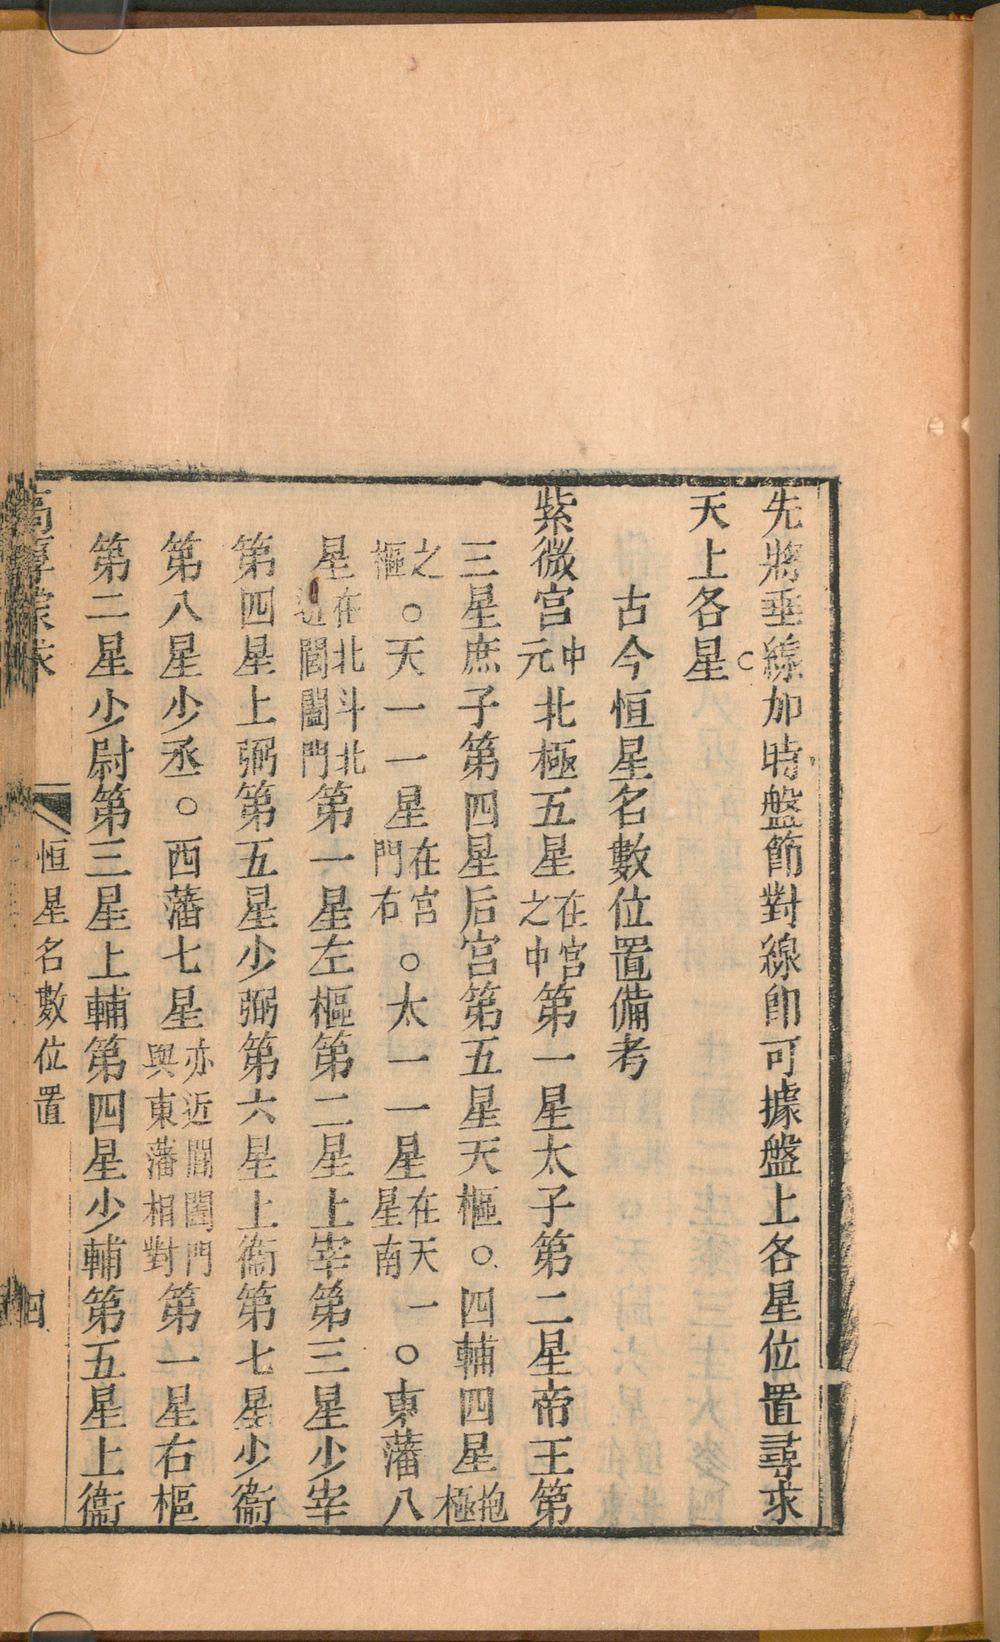 先將垂線加時盤節對線卽可據盤上各星位置尋求
天上各星○
古今恒星名數位置備考
紫微宮中元北極五星在宮之中第一星太子第二星帝王第
三星庶子第四星后宮第五星天樞○四輔四星抱極
之樞○天一一星在宮門右○太一一星在天一星南○東藩八
星在北斗北近閶闔門第一星左樞第二星上宰第三星少宰
第四星上弼第五星少弼第六星上衞第七星少衞
第八星少丞○西藩七星亦近閶闔門與東藩相對第一星右樞
第二星少尉第三星上輔第四星少輔第五星上衞
恒星名數位置
四